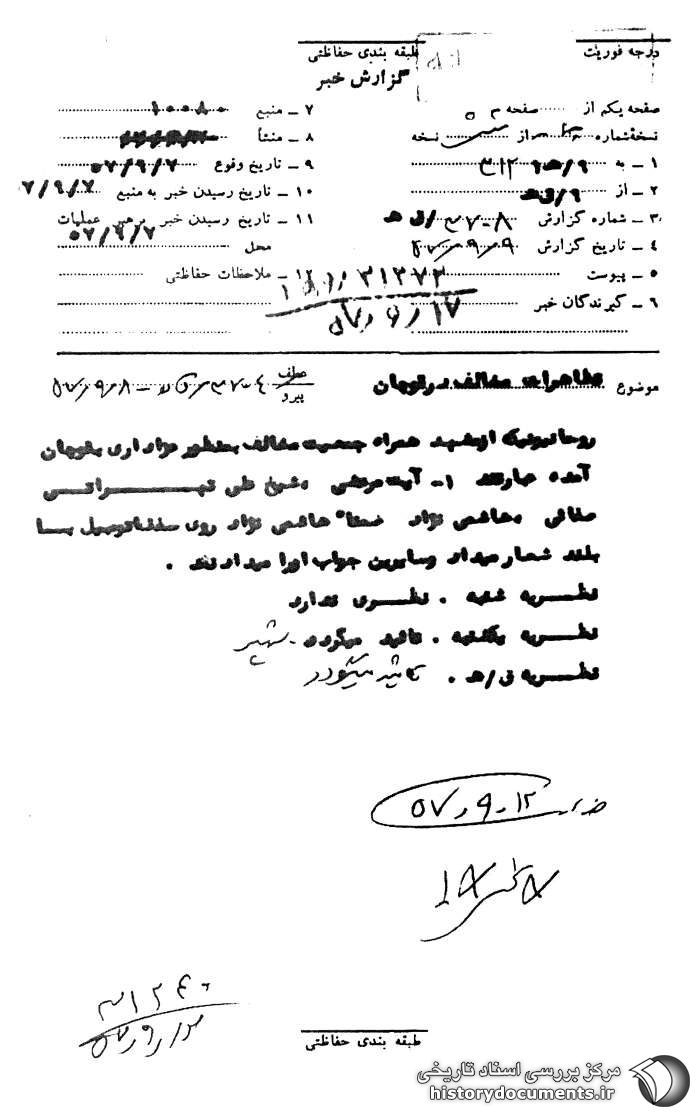 درجه فوریت
طبقه بندی حفاظتی
گزارش خبر
صفحه یکم از صفحه
نسخه شماره از نسخه
۱ ـ به ۳۱۲
۲ ـ از ۹/ق هـ
۳ ـ شماره گزارش
۴ ـ تاریخ گزارش ۵۷/۹/۹
۵ ـ پیوست
۶ ـ گیرندگان خبر
۷ ـ منبع ۱۰۰۸۰
۸ ـ منشأ
۹ ـ تاریخ وقوع ۵۷/۹/۷
۱۰ ـ تاریخ رسیدن خبر به منبع ۷/۹/۷
۱۱ ـ تاریخ رسیدن خبر برهبر عملیات
محل ۵۷/۹/۷
۱۲ ـ ملاحظات حفاظتی
۳۱۳۷۳
موضوع تظاهرات مخالف در قوچان
عطف
پیرو ۵۷/۹/۸
روحانیونیکه ازمشهد همراه جمعیت مخالف بمنظور عزاداری بقوچان
آمده عبارتند ۱- آیت مرعشی ، شیخ علی تهــرانــی
صفائی ، هاشمی نژاد ضمناً هاشمی نژاد روی سقف اتومبیل بــا
بلند شعار میداد وسایرین جواب اورا میدادند .
نظــریه شنبه . نظــری ندارد
نظــریه یکشنبه . تائید میگردد .
نظــریه ق/هـ . تائید میگردد
۵۷/۹/۱۲
۳۱۲۴۰
۵۷/۹/۱۲
طبقه بندی حفاظتی
مرکز بررسی اسناد تاریخی
historydocuments.ir